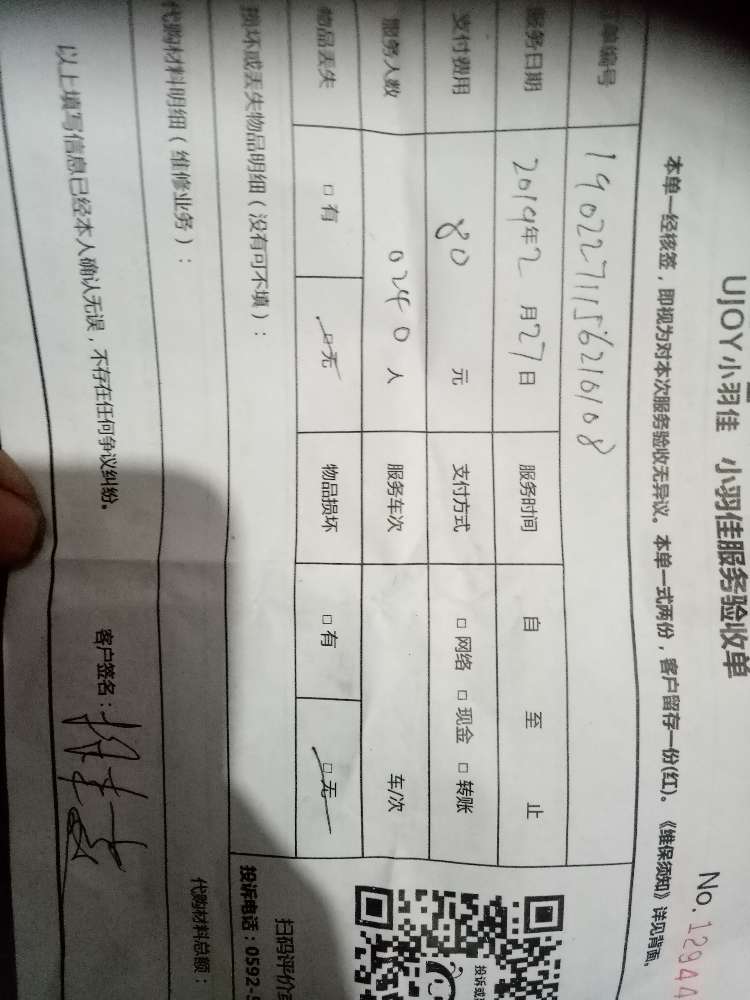 UJOY小羽佳 小羽佳服务验收单
No. 12944
本单一经核签，即视为对本次服务验收无异议。本单一式两份，客户留存一份(红)。《维保须知》详见背面。
单编号 1902271156216108
服务日期 2019年2月27日 服务时间 自 至 止
支付费用 80 元 支付方式 □ 网络 □ 现金 □ 转账
服务人数 0240 人 服务车次 车/次
物品丢失 □ 有 □ 无 物品损坏 □ 有 □ 无
损坏或丢失物品明细（没有可不填）：
扫码评价
投诉电话：0592-
代购材料明细（维修业务）：
代购材料总额：
以上填写信息已经本人确认无误，不存在任何争议纠纷。 客户签名：